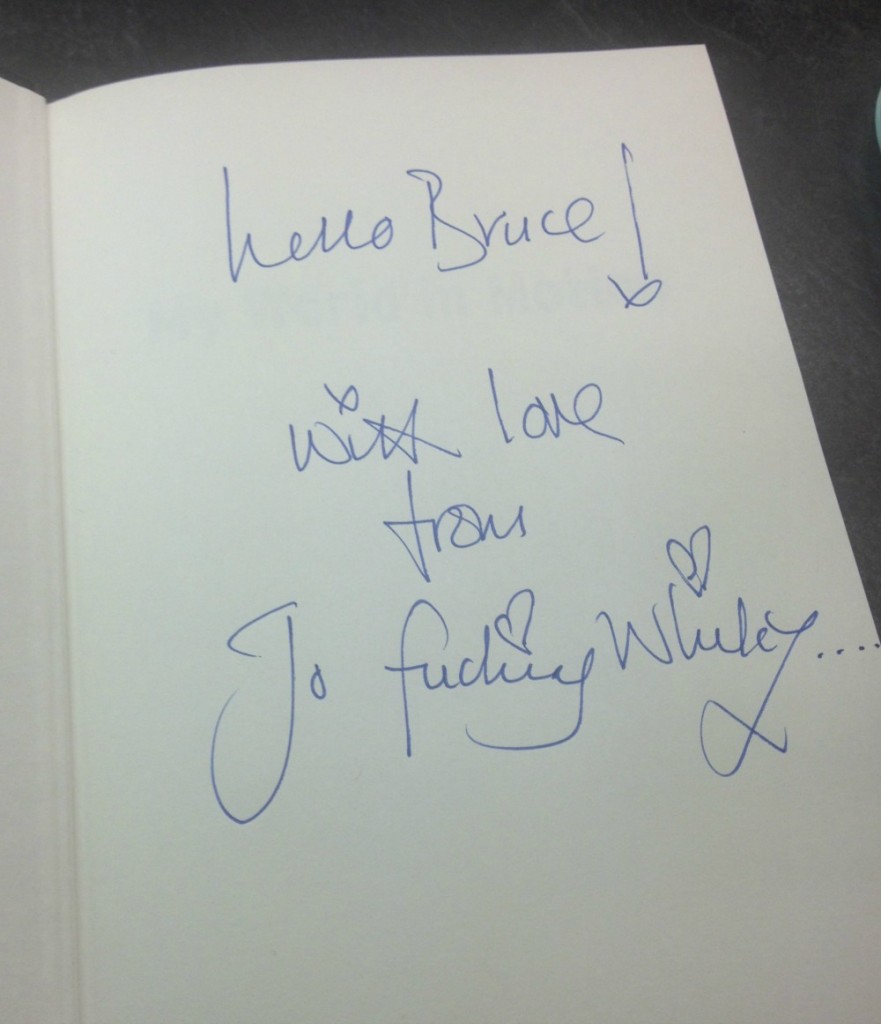 hello Bruce!
with love
from
Jo fucking Whiley....